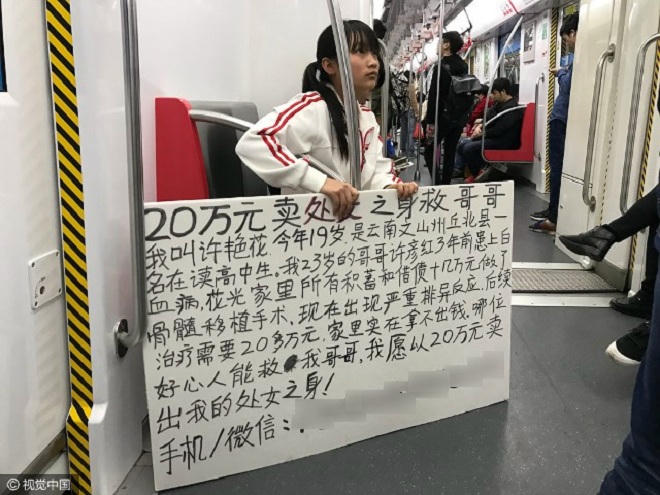 20万元卖处女之身救哥哥
我叫许艳花今年19岁,是云南文山州丘北县一
名在读高中生。我23岁的哥哥许彦红3年前患上白
血病,花光家里所有积蓄和借债十几万元做了
骨髓移植手术,现在出现严重排异反应,后续
治疗需要20多万元,家里实在拿不出钱,哪位
好心人能救我哥哥,我愿以20万元卖
出我的处女之身!
手机/微信:
视觉中国